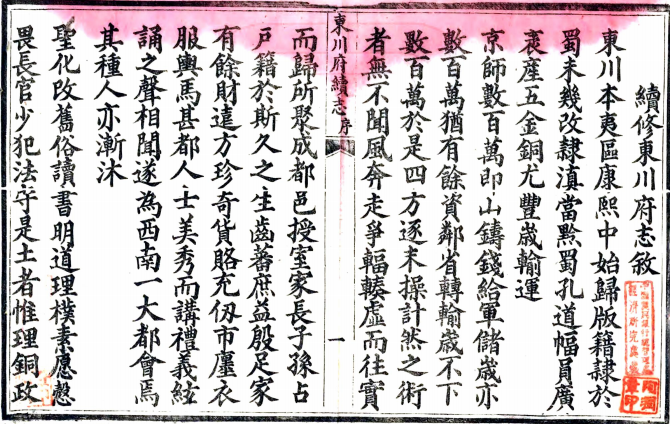 續修東川府志敘
東川本夷區康熙中始歸版籍隸於
蜀未幾改隸滇當黔蜀孔道幅員廣
袤產五金銅尤豐歲輸運
京師數百萬即山鑄錢給軍儲歲亦
數百萬猶有餘資鄰省轉輸歲不下
數百萬於是四方逐末操計然之術
者無不聞風奔走爭輻輳虛而往實
東川府續志 序
一
而歸所聚成都邑授室家長子孫占
戶籍於斯久之生齒蕃庶益殷足家
有餘財遠方珍奇貨賂充仞市廛衣
服輿馬甚都人士美秀而講禮義絃
誦之聲相聞遂為西南一大都會焉
其種人亦漸沐
聖化改舊俗讀書明道理樸素愿愨
畏長官少犯法守是土者惟理銅政